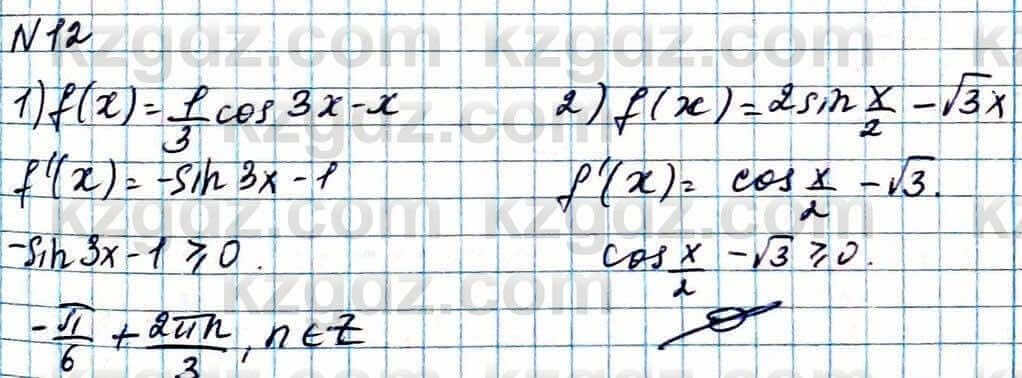 N12
1) f(x) = 1/3 cos 3x - x
f'(x) = -sin 3x - 1
-sin 3x - 1 ⩾ 0.
-π/6 + 2πn/3, n ∈ Z
2) f(x) = 2sin x/2 - √3x
f'(x) = cos x/2 - √3.
cos x/2 - √3 ⩾ 0.
∅
kzgdz.com kzgdz.com
kzgdz.com kzgdz.com
kzgdz.com kzgdz.com
kzgdz.com kzgdz.com